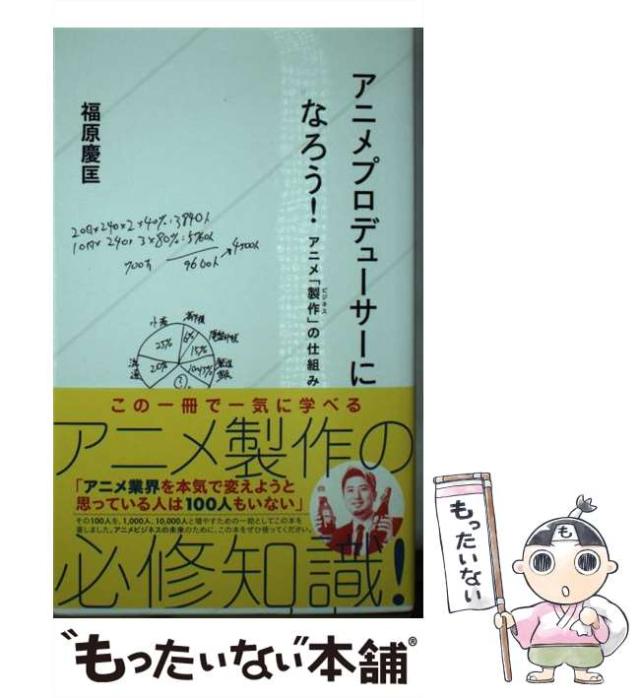 アニメプロデューサーに
なろう!
アニメ「製作」の仕組み
ビジネス
福原慶匡
700万
小売
25%
6%
15%
流通
20%
この一冊で一気に学べる
アニメ製作の
「アニメ業界を本気で変えようと
思っている人は100人もいない」
その100人を、1,000人、10,000人と増やすための一助としてこの本を
著しました。アニメビジネスの未来のために、この本をぜひ使ってください。
必修知識!
もったいない
"もったいない"本舗®